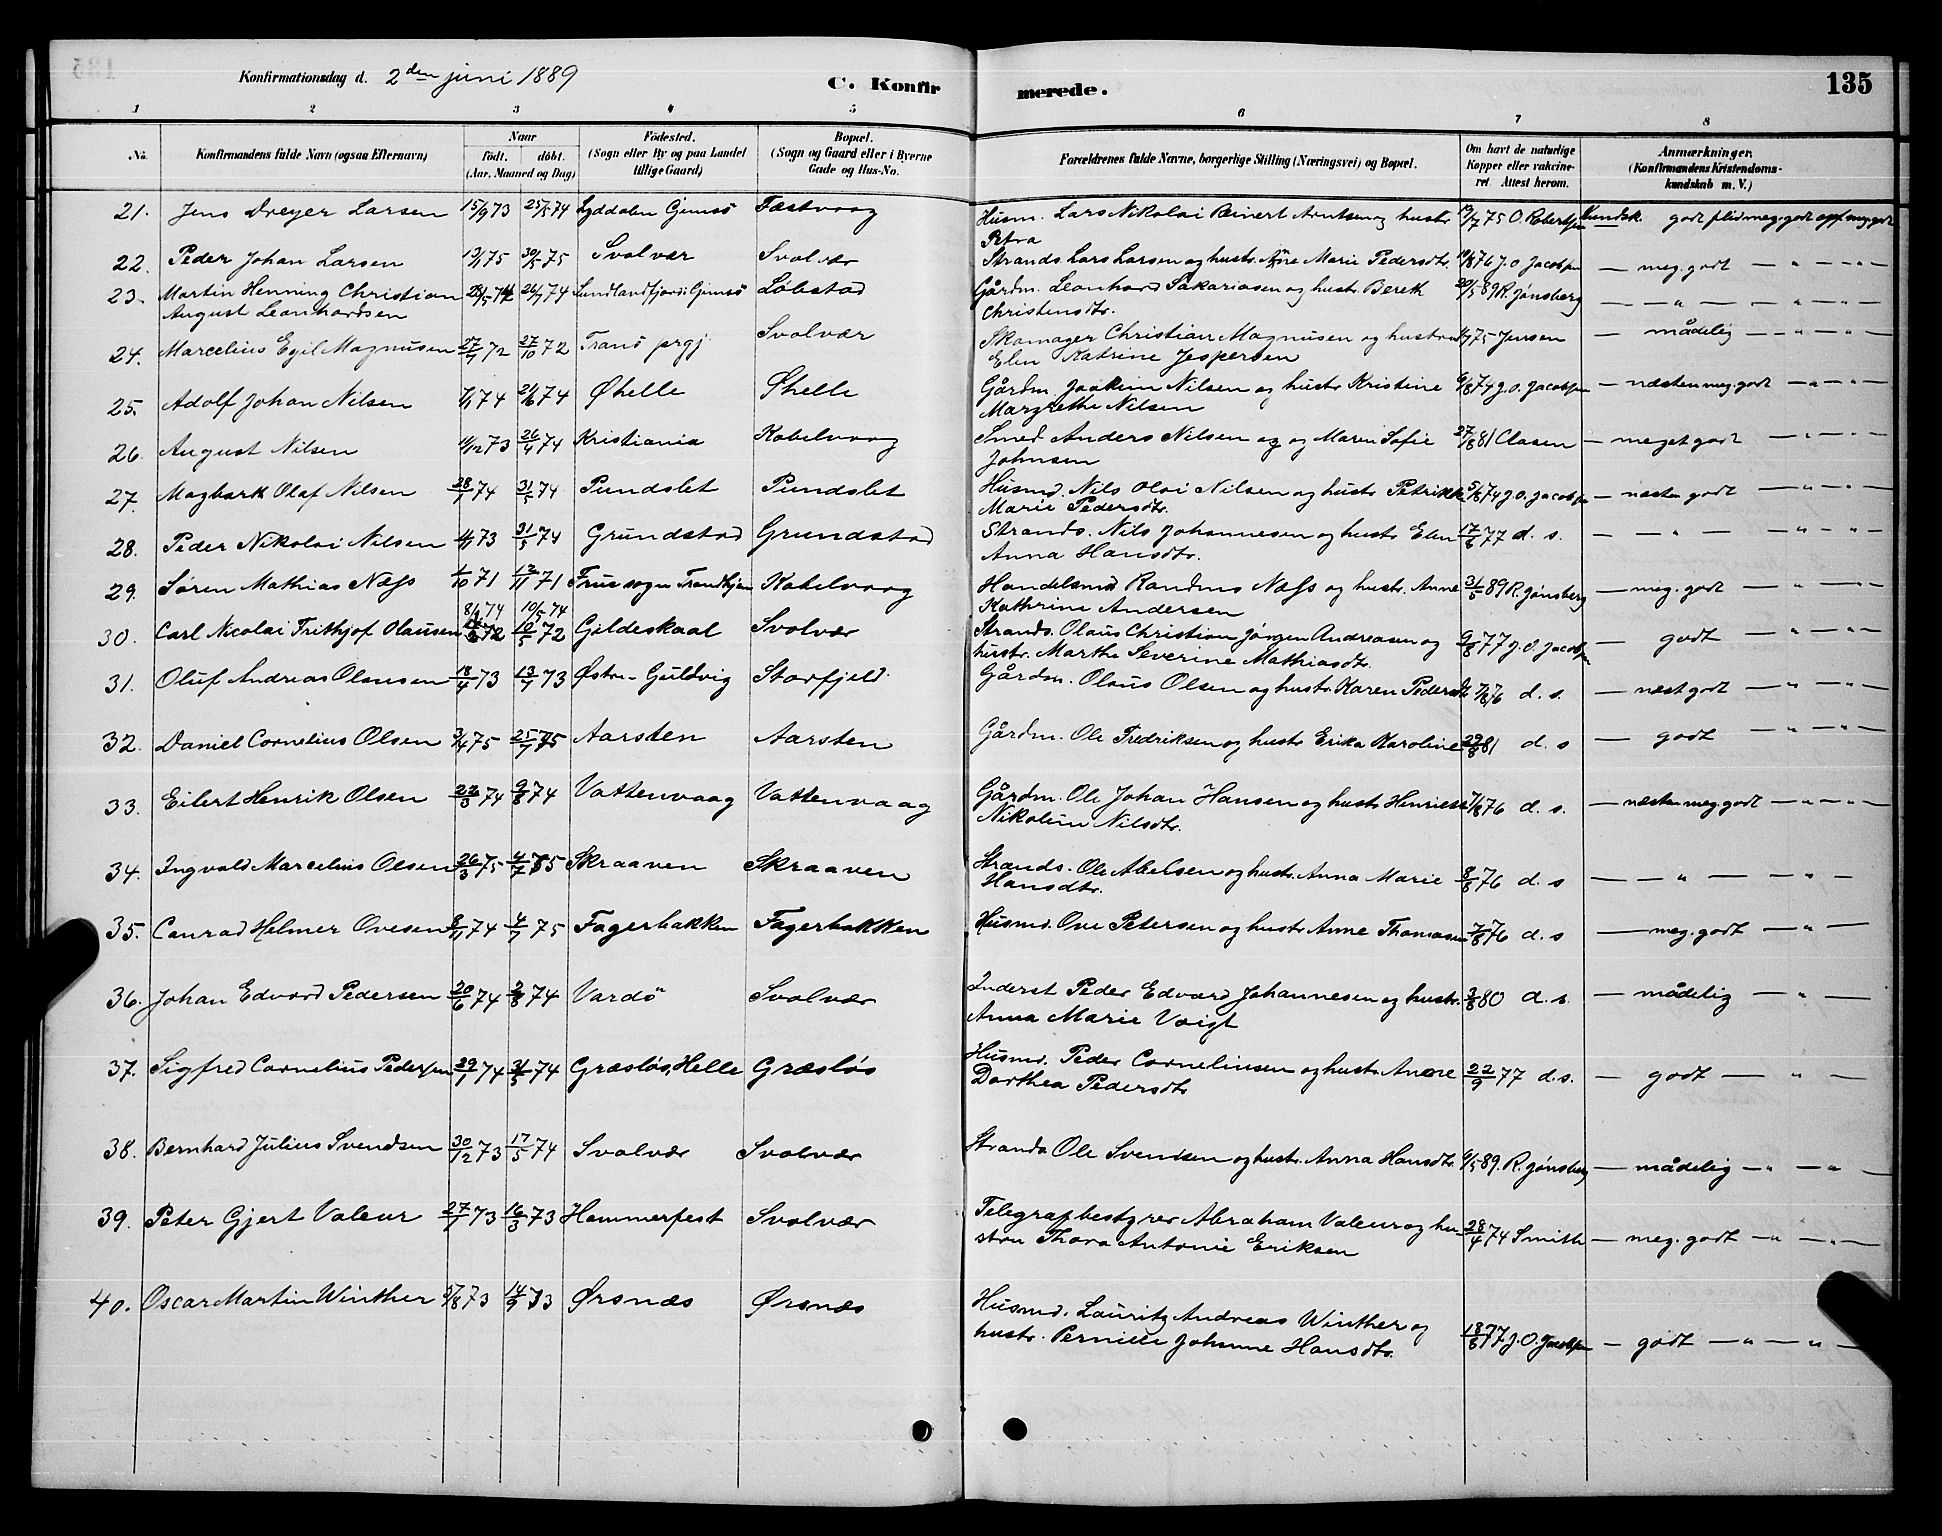 Konfirmationsdag d. 2den juni 1889
C. Konfir
merede.
135
1 2 3 4 5 6 7 8
No.
Konfirmandens fulde Navn (ogsaa Efternavn)
Naar
født. døbt.
(Aar, Maaned og Dag)
Fødested.
(Sogn eller By og paa Landet
tillige Gaard)
Bopæl.
(Sogn og Gaard eller i Byerne
Gade og Hus-No.
Forældrenes fulde Navne, borgerlige Stilling (Næringsvei) og Bopæl.
Om havt de naturlige
Kopper eller vakcine-
ret. Attest herom.
Anmærkninger.
(Konfirmandens Kristendoms-
kundskab m. V.)
21. Jens Dreyer Larsen 15/9 73 25/5 74 Lyddalen Gimsö Fæstvaag Husm. Lars Nikolai Beinert Arntsen og hustr. 75 O. Robertsen Kundsk. godt flid meg. godt opf meg. godt
Petra
22. Peder Johan Larsen 13/1 75 30/5 75 Svolvær Svolvær Strands. Lars Larsen og hustr. Marie Pedersdtr. 76 J. O. Jacobsen — meg. godt — " — " —
23. Martin Henning Christian 26/7 74 Sundlandsfjord i Gimsö Löbstad Gårdm. Leonhard Sakariasen og hustr. Bereth 20/5 89 R. Jønsberg — — " — — " — " —
August Leonhardsen Christensdtr.
24. Marcelius Egil Magnusen 27/7 72 27/10 72 Tranö prgj. Svolvær Skomager Christian Magnusen og hustru 75 Jensen — mådelig — " — " —
Elen Katrine Jespersen
25. Adolf Johan Nilsen 1/1 74 74 Øhelle Øhelle Gårdm. Joakim Nilsen og hustr. Kristine 6/8 74 J. O. Jacobsen — næsten meg. godt — " — " —
Margrethe Nilsen
26. August Nilsen 11/12 73 26/4 74 Kristiania Kabelvaag Smed Anders Nilsen og og Maren Sofie 27/8 81 Clasen — meget godt — " — " —
Johnsen
27. Magbark Olaf Nilsen 28/1 74 31/5 74 Pundslet Pundslet Husmd. Nils Olai Nilsen og hustr. Petrikke 5/8 74 J. O. Jacobsen — næsten godt — " — " —
Marie Pedersdtr.
28. Peder Nikolai Nilsen 4/1 73 31/5 74 Grundstad Grundstad Strands. Nils Johannesen og hustr. Elen 17/8 77 d. s. — — " — " — " —
Anna Hansdtr.
29. Søren Mathias Næss 1/10 71 12/11 71 Frue sogn Trondhjem Kabelvaag Handelsmd Randius Næss og hustr. Anne 31/5 89 R. Jønsberg — meg. godt — " — " —
Kathrine Andersen
8/2 74 10/5 74
30. Carl Nicolai Frithjof Olausen 72 10/5 72 Gildeskaal Svolvær Strands. Olaus Christian Jørgen Andreasen og 9/8 77 J. O. Jacobsen — godt — " — " —
hustr. Marthe Severine Mathiasdtr.
31. Oluf Andreas Olausen 18/4 73 13/7 73 Østre- Guldvig Storfjeld Gårdm. Olaus Olsen og hustr. Karen Pedersdtr 7/8 76 d. s. — næst godt — " — " —
32. Daniel Cornelius Olsen 3/4 75 25/7 75 Aarsten Aarsten Gårdm. Ole Fredriksen og hustr. Erika Karoline 29/8 81 d. s — godt — " — " —
33. Eilert Henrik Olsen 22/3 74 9/8 74 Vattenvaag Vattenvaag Gårdm. Ole Johan Hansen og hustr. Henriette 7/8 76 d. s. — næsten meg. godt — " — " —
Nikoline Nilsdtr.
34. Ingvald Marcelius Olsen 26/3 75 4/7 75 Skraaven Skraaven Strands. Ole Abelsen og hustr. Anna Marie 8/8 76 d. s — — " — — " — " —
Hansdtr.
35. Conrad Helmer Ovesen 8/11 74 4/7 75 Fagerbakken Fagerbakken Husmd. Ove Petersen og hustr. Anne Thomasen 7/8 76 d. s — meg. godt — " —
36. Johan Edvard Pedersen 20/6 74 2/8 74 Vardö Svolvær Inderst Peder Edvard Johannesen og hustr. 3/8 80 d. s. — mådelig — " —
Anna Marie Voigt
37. Sigfred Cornelius Pedersen 29/1 74 31/5 74 Græsløs, Helle Græsløs Husmd. Peder Corneliusen og hustr. Anne 22/9 77 d. s. — godt — " —
Dorthea Pedersdtr
38. Bernhard Julius Svendsen 30/12 73 17/5 74 Svolvær Svolvær Strands Ole Svendsen og hustr. Anna Hansdtr. 9/5 89. R. Jønsberg — mådelig — " — " —
39. Peter Gjert Valeur 27/1 73 16/3 73 Hammerfest Svolvær Telegrafbestyrer Abraham Valeur og hu- 28/4 74 Smith — meg. godt — " — " —
stru Thora Antonie Eriksen
40. Oscar Martin Winther 5/8 73 14/9 73 Ørsnæs Ørsnæs Husmd. Lauritz Andreas Winther og
hustr. Pernille Johanne Hansdtr. 18/8 77 J. O. Jacobsen — godt — " — " —